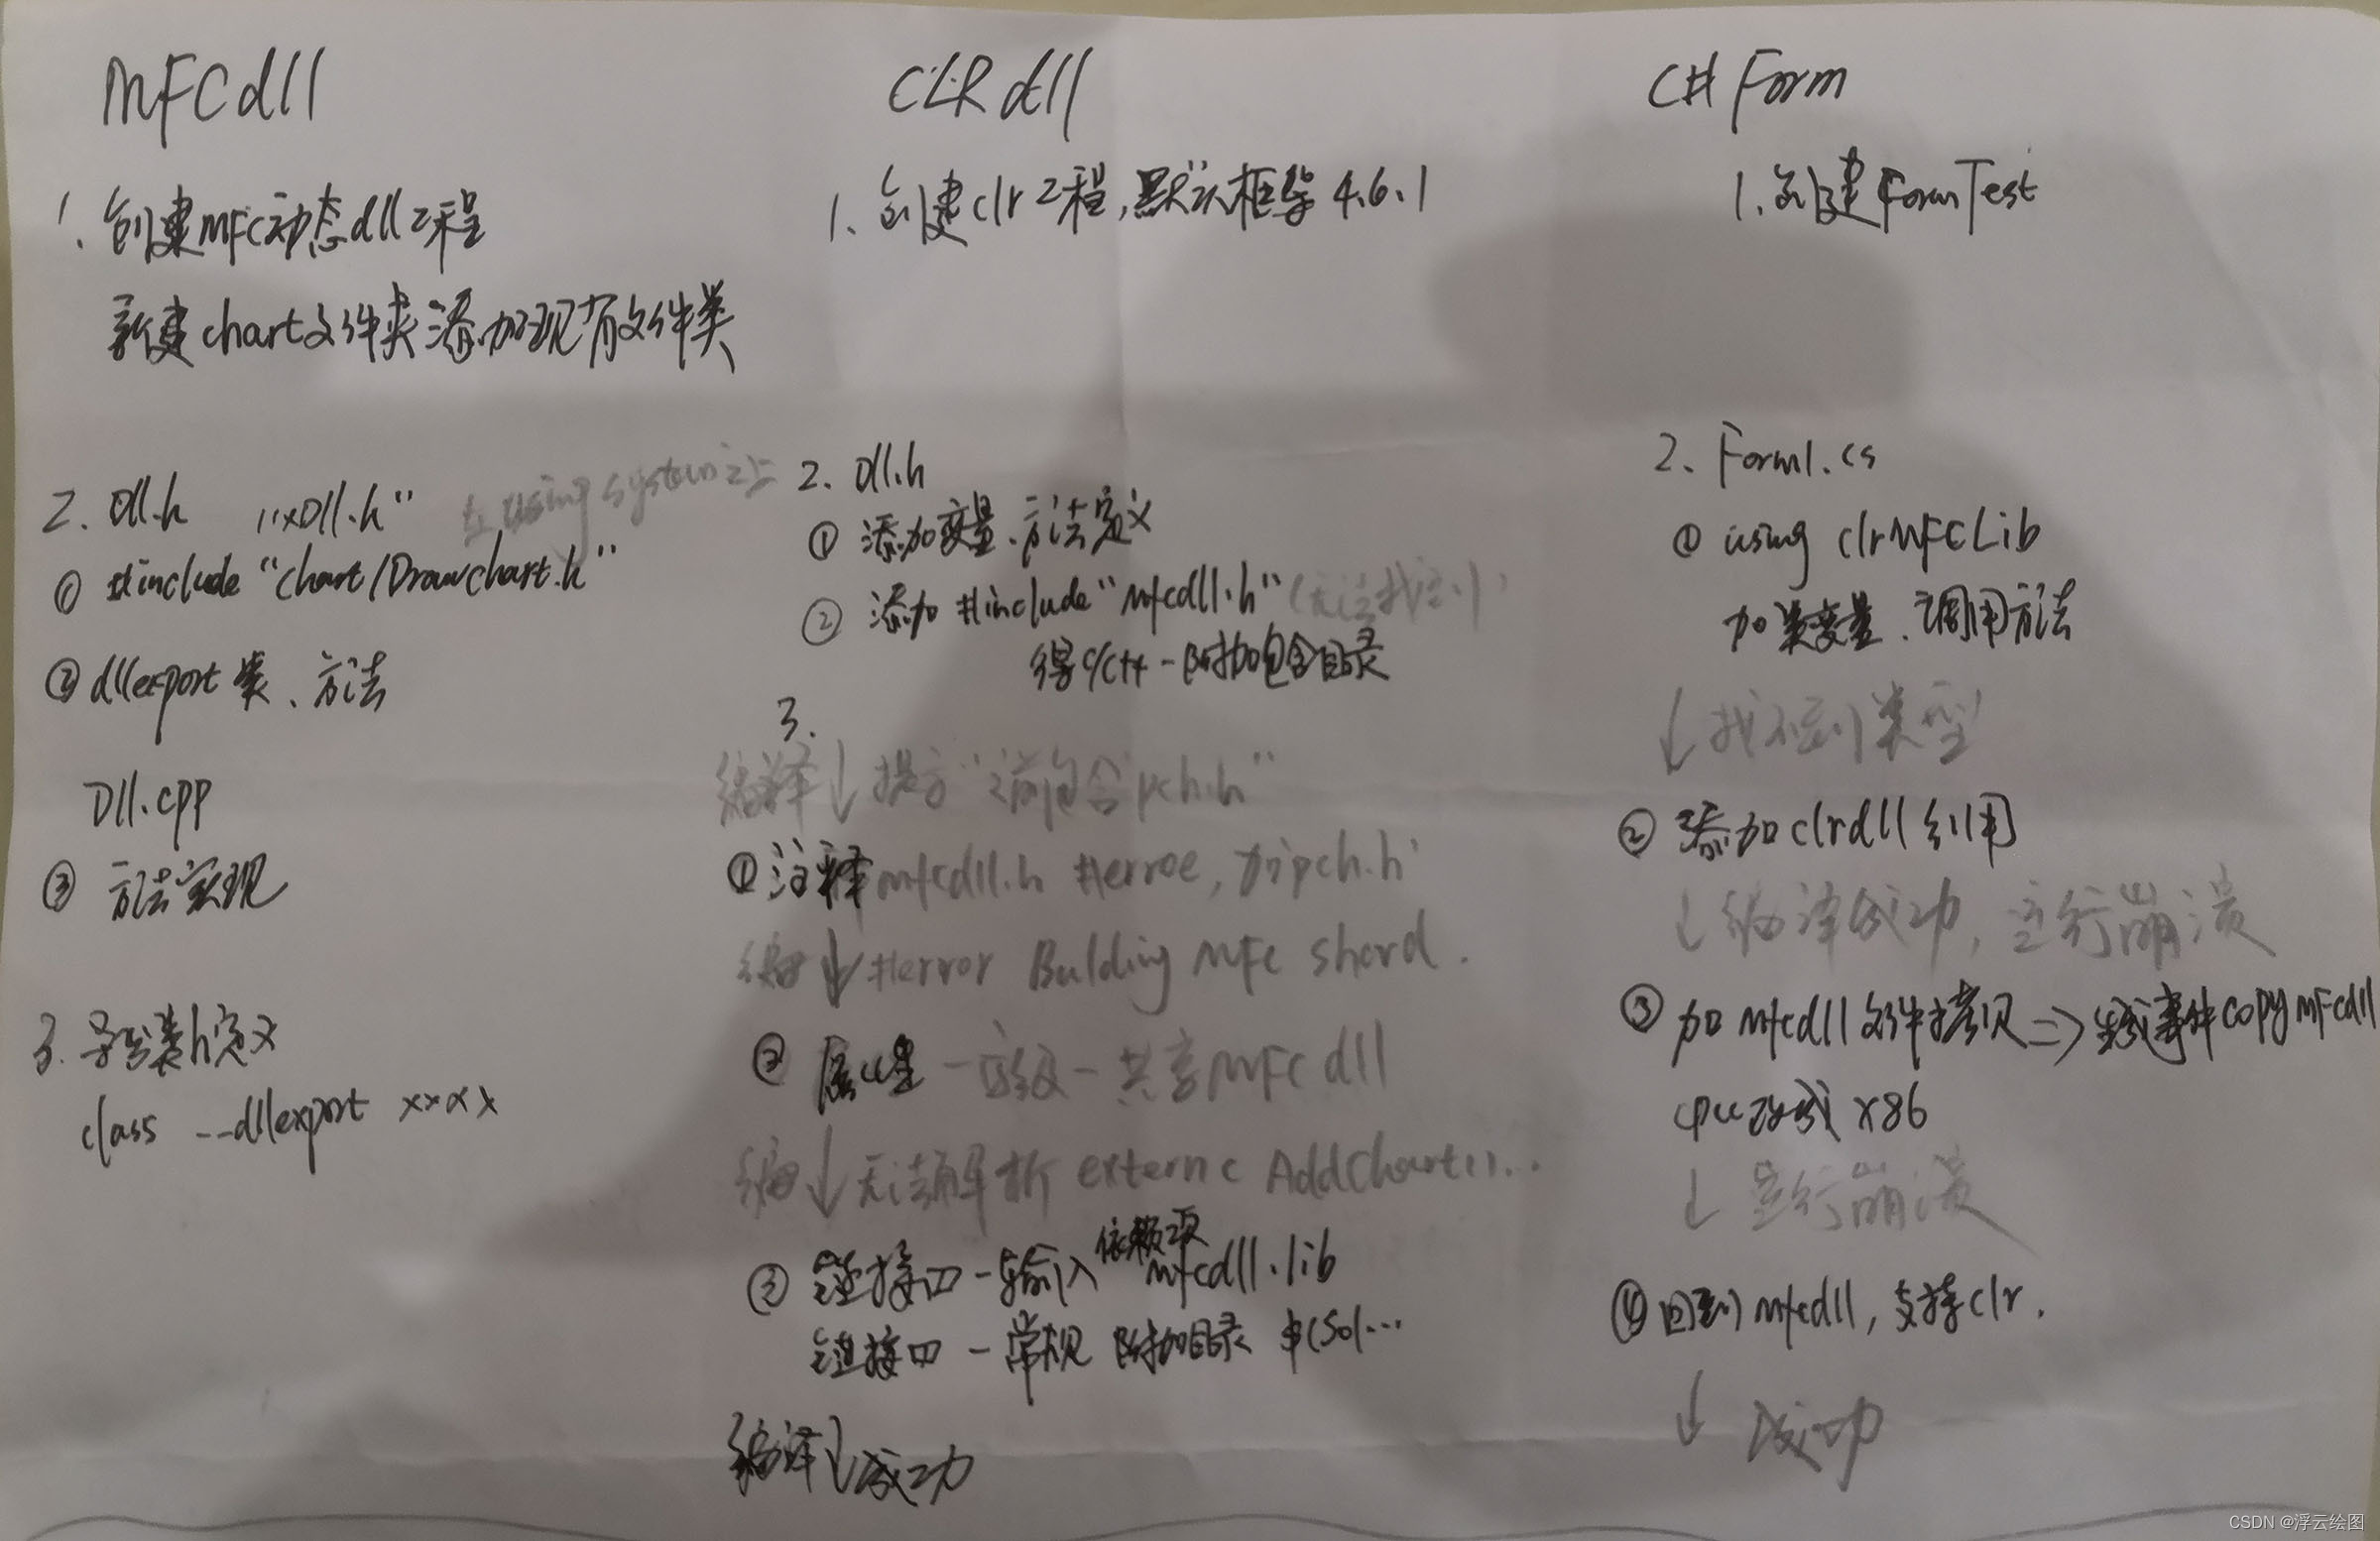 MFCdll
1. 创建MFC动态dll工程
新建chart文件夹添加现有文件类
2. Dll.h "xDll.h"
① #include "chart/Drawchart.h"
② dllexport 类、方法
Dll.cpp
③ 方法实现
3. 导出类h定义
class __dllexport xxxx
CLR dll
1. 创建clr工程,默认框架 4.6.1
在using system之上
2. Dll.h
① 添加变量、方法定义
② 添加 #include "mfcdll.h" (无法找到)
得 C/C++ - 附加包含目录
3.
编译↓提示"请包含pch.h"
① 注释mfcdll.h #erroe, 加pch.h
编↓#error Bulding MFC shard.
② 属性 - 高级 - 共享MFC dll
编↓无法解析 extern c AddChart()...
③ 链接口 - 输入 依赖项 mfcdll.lib
链接口 - 常规 附加目录 $(Sol...
编译↓成功
C# Form
1. 创建FormTest
2. Form1.cs
① using clrMFCLib
加类变量、调用方法
↓找不到类型
② 添加clrdll引用
↓编译成功,运行崩溃
③ 加mfcdll文件拷贝 => 生成事件copy MFCdll
cpu改成 x86
↓运行崩溃
④ 回到mfcdll,支持clr.
↓成功
CSDN @浮云绘图